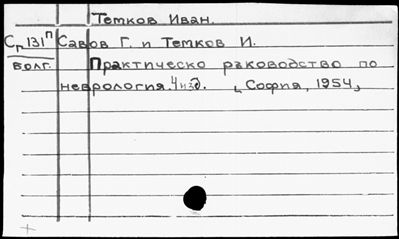 Темков Иван.
Сп 131п Савов Г. и Темков И.
волг. Практическо ръководство по
неврология. 4 изд. [София, 1954]